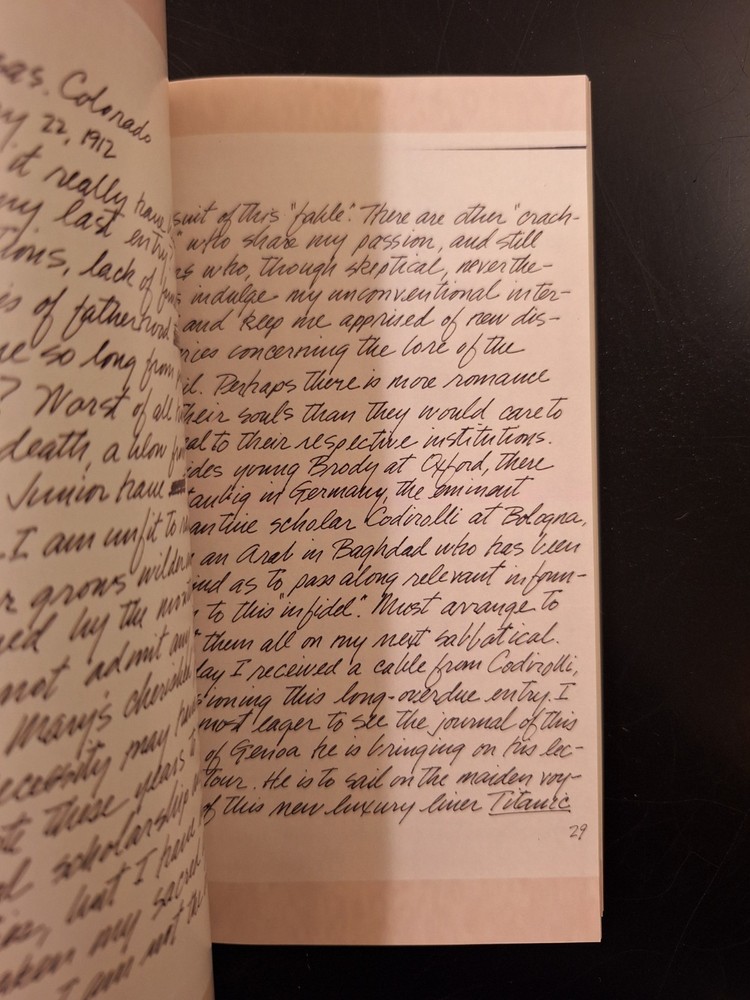 as. Colorado
22, 1912
it really have
my last entry
tions, lack of
es of fatherhood
me so long from
? Worst of all
death, a blow
Junior have
I am unfit to
r grows wilder
ned by the
not admit any
Mary's cherished
ecessity may have
these years
scholarship
but I have
aken my sacred
I am not the
suit of this "fable". There are other "crack-
" who share my passion, and still
rs who, though skeptical, neverthe-
s indulge my unconventional inter-
and keep me apprised of new dis-
ries concerning the lore of the
il. Perhaps there is more romance
their souls than they would care to
eal to their respective institutions.
ides young Brody at Oxford, there
in Germany, the eminent
antine scholar Codirolli at Bologna,
an Arab in Baghdad who has been
ind as to pass along relevant infor-
to this "infidel". Must arrange to
t them all on my next sabbatical.
day I received a cable from Codirolli,
sioning this long-overdue entry. I
most eager to see the journal of this
of Genoa he is bringing on his lec-
tour. He is to sail on the maiden voy-
of this new luxury liner Titanic
29